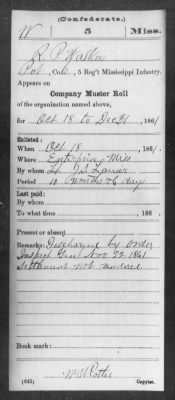 (Confederate.)
W 5 Miss.
R P Walker
Pvt, Co. C, 5 Reg't Mississippi Infantry.
Appears on
Company Muster Roll
of the organization named above,
for Oct 18 to Dec 31, 1861
Enlisted:
When Oct 18, 1861
Where Enterprise Miss
By whom Lt. Lanier
Period 10 months & days
Last paid:
By whom
To what time , 186 .
Present or absent
Remarks: Discharge by order
Inspect Genl Nov 22 1861
Settlement not
Book mark:
(642) Copyist.